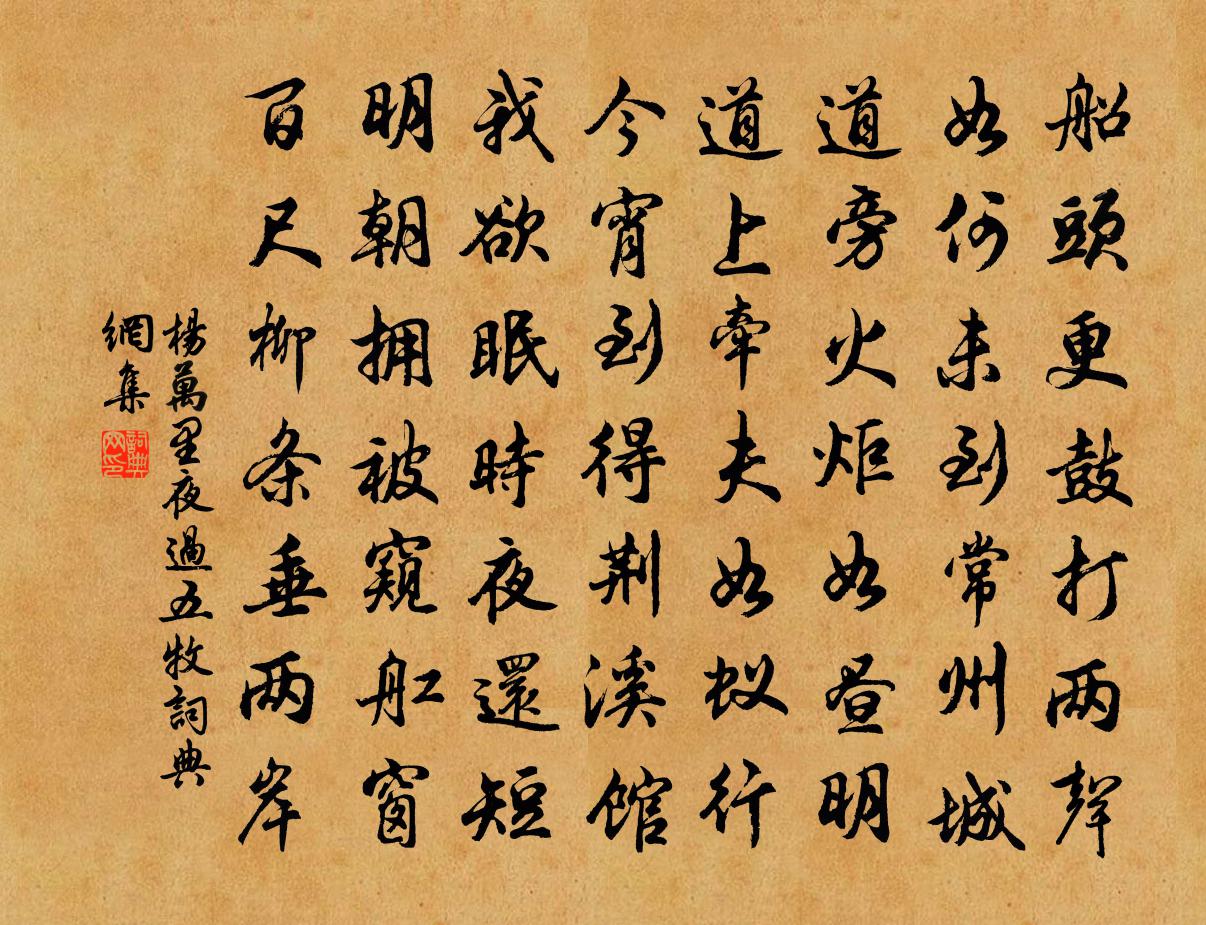 船頭更鼓打两聲
如何未到常州城
道旁火炬如昼明
道上牵夫如蚁行
今宵到得荆溪馆
我欲眠時夜還短
明朝拥被窺舡窗
百尺柳条垂两岸
楊萬里夜過五牧詞典
網集
詞典
网印